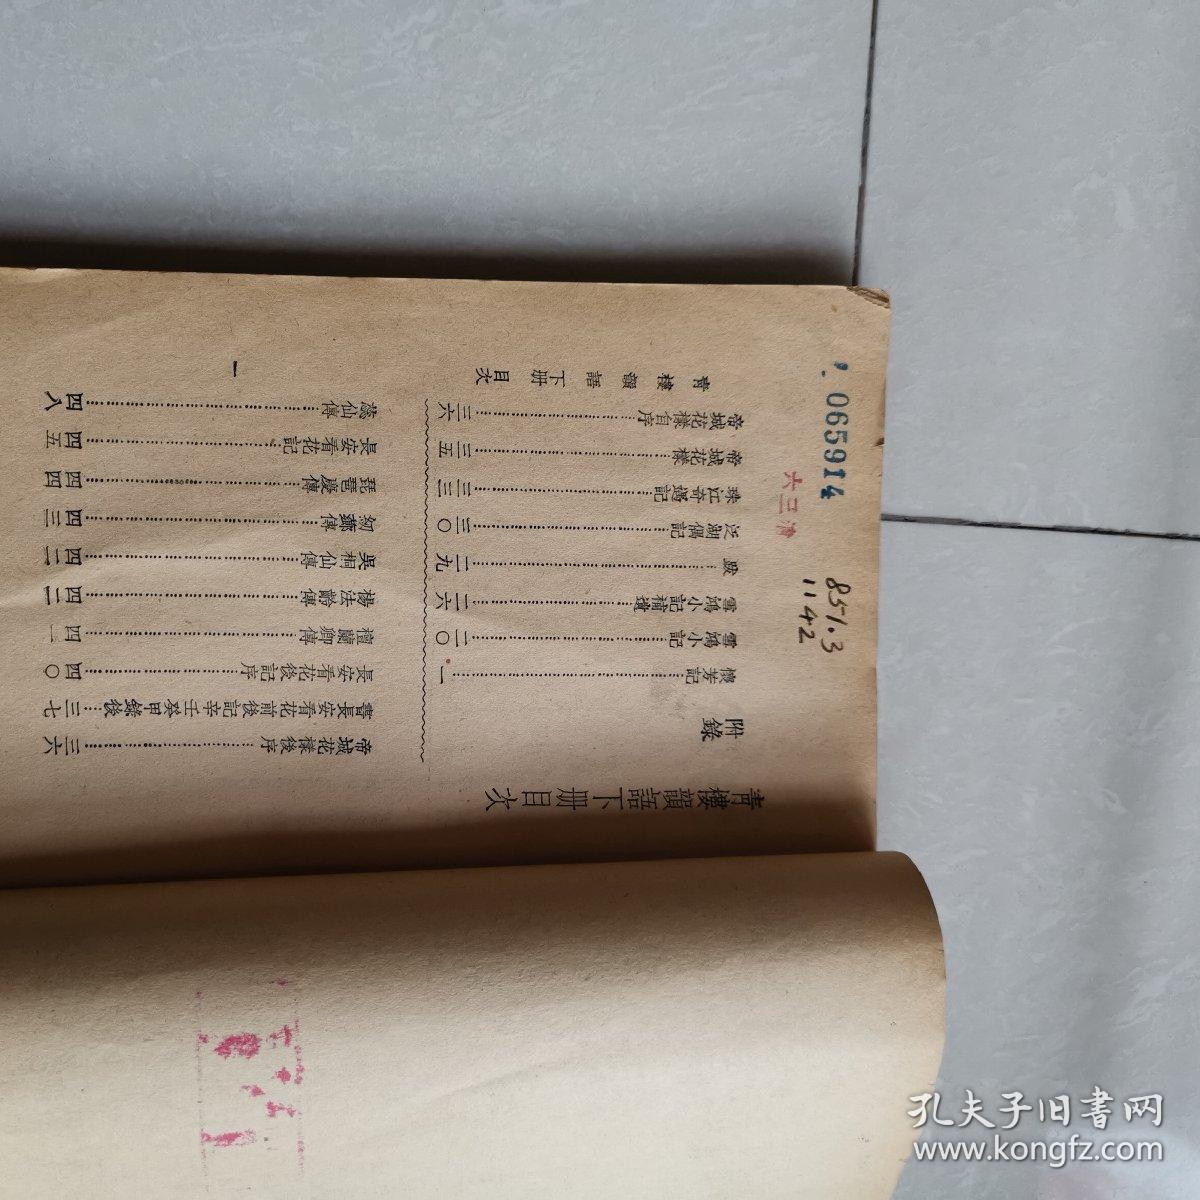 青樓韻語下冊目次
附錄
懷芳記……一
雪鴻小記……二〇
雪鴻小記補遺……二六
跋……二九
泛湖偶記……三〇
珠江奇遇記……三三
帝城花樣……三五
帝城花樣自序……三六
青樓韻語下冊目次
帝城花樣後序……三六
書長安看花前後記辛壬癸甲錄後……三七
長安看花後記序……四〇
檀蘭卿傳……四一
楊法齡傳……四二
吳桐仙傳……四二
芻蕭傳……四三
琵琶慶傳……四四
長安看花記……四五
蕊仙傳……四八
一
065914
六三清
851.3
1142
孔夫子旧书网
www.kongfz.com